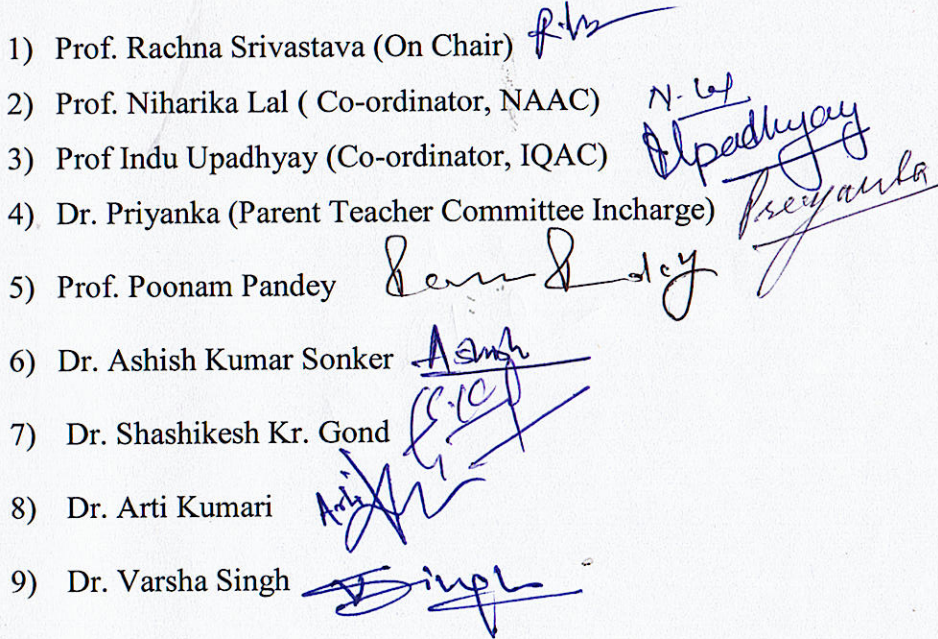 1) Prof. Rachna Srivastava (On Chair)
2) Prof. Niharika Lal ( Co-ordinator, NAAC) N. Lal
3) Prof Indu Upadhyay (Co-ordinator, IQAC) Upadhyay
4) Dr. Priyanka (Parent Teacher Committee Incharge) Priyanka
5) Prof. Poonam Pandey
6) Dr. Ashish Kumar Sonker Ashish
7) Dr. Shashikesh Kr. Gond
8) Dr. Arti Kumari Arti
9) Dr. Varsha Singh Singh